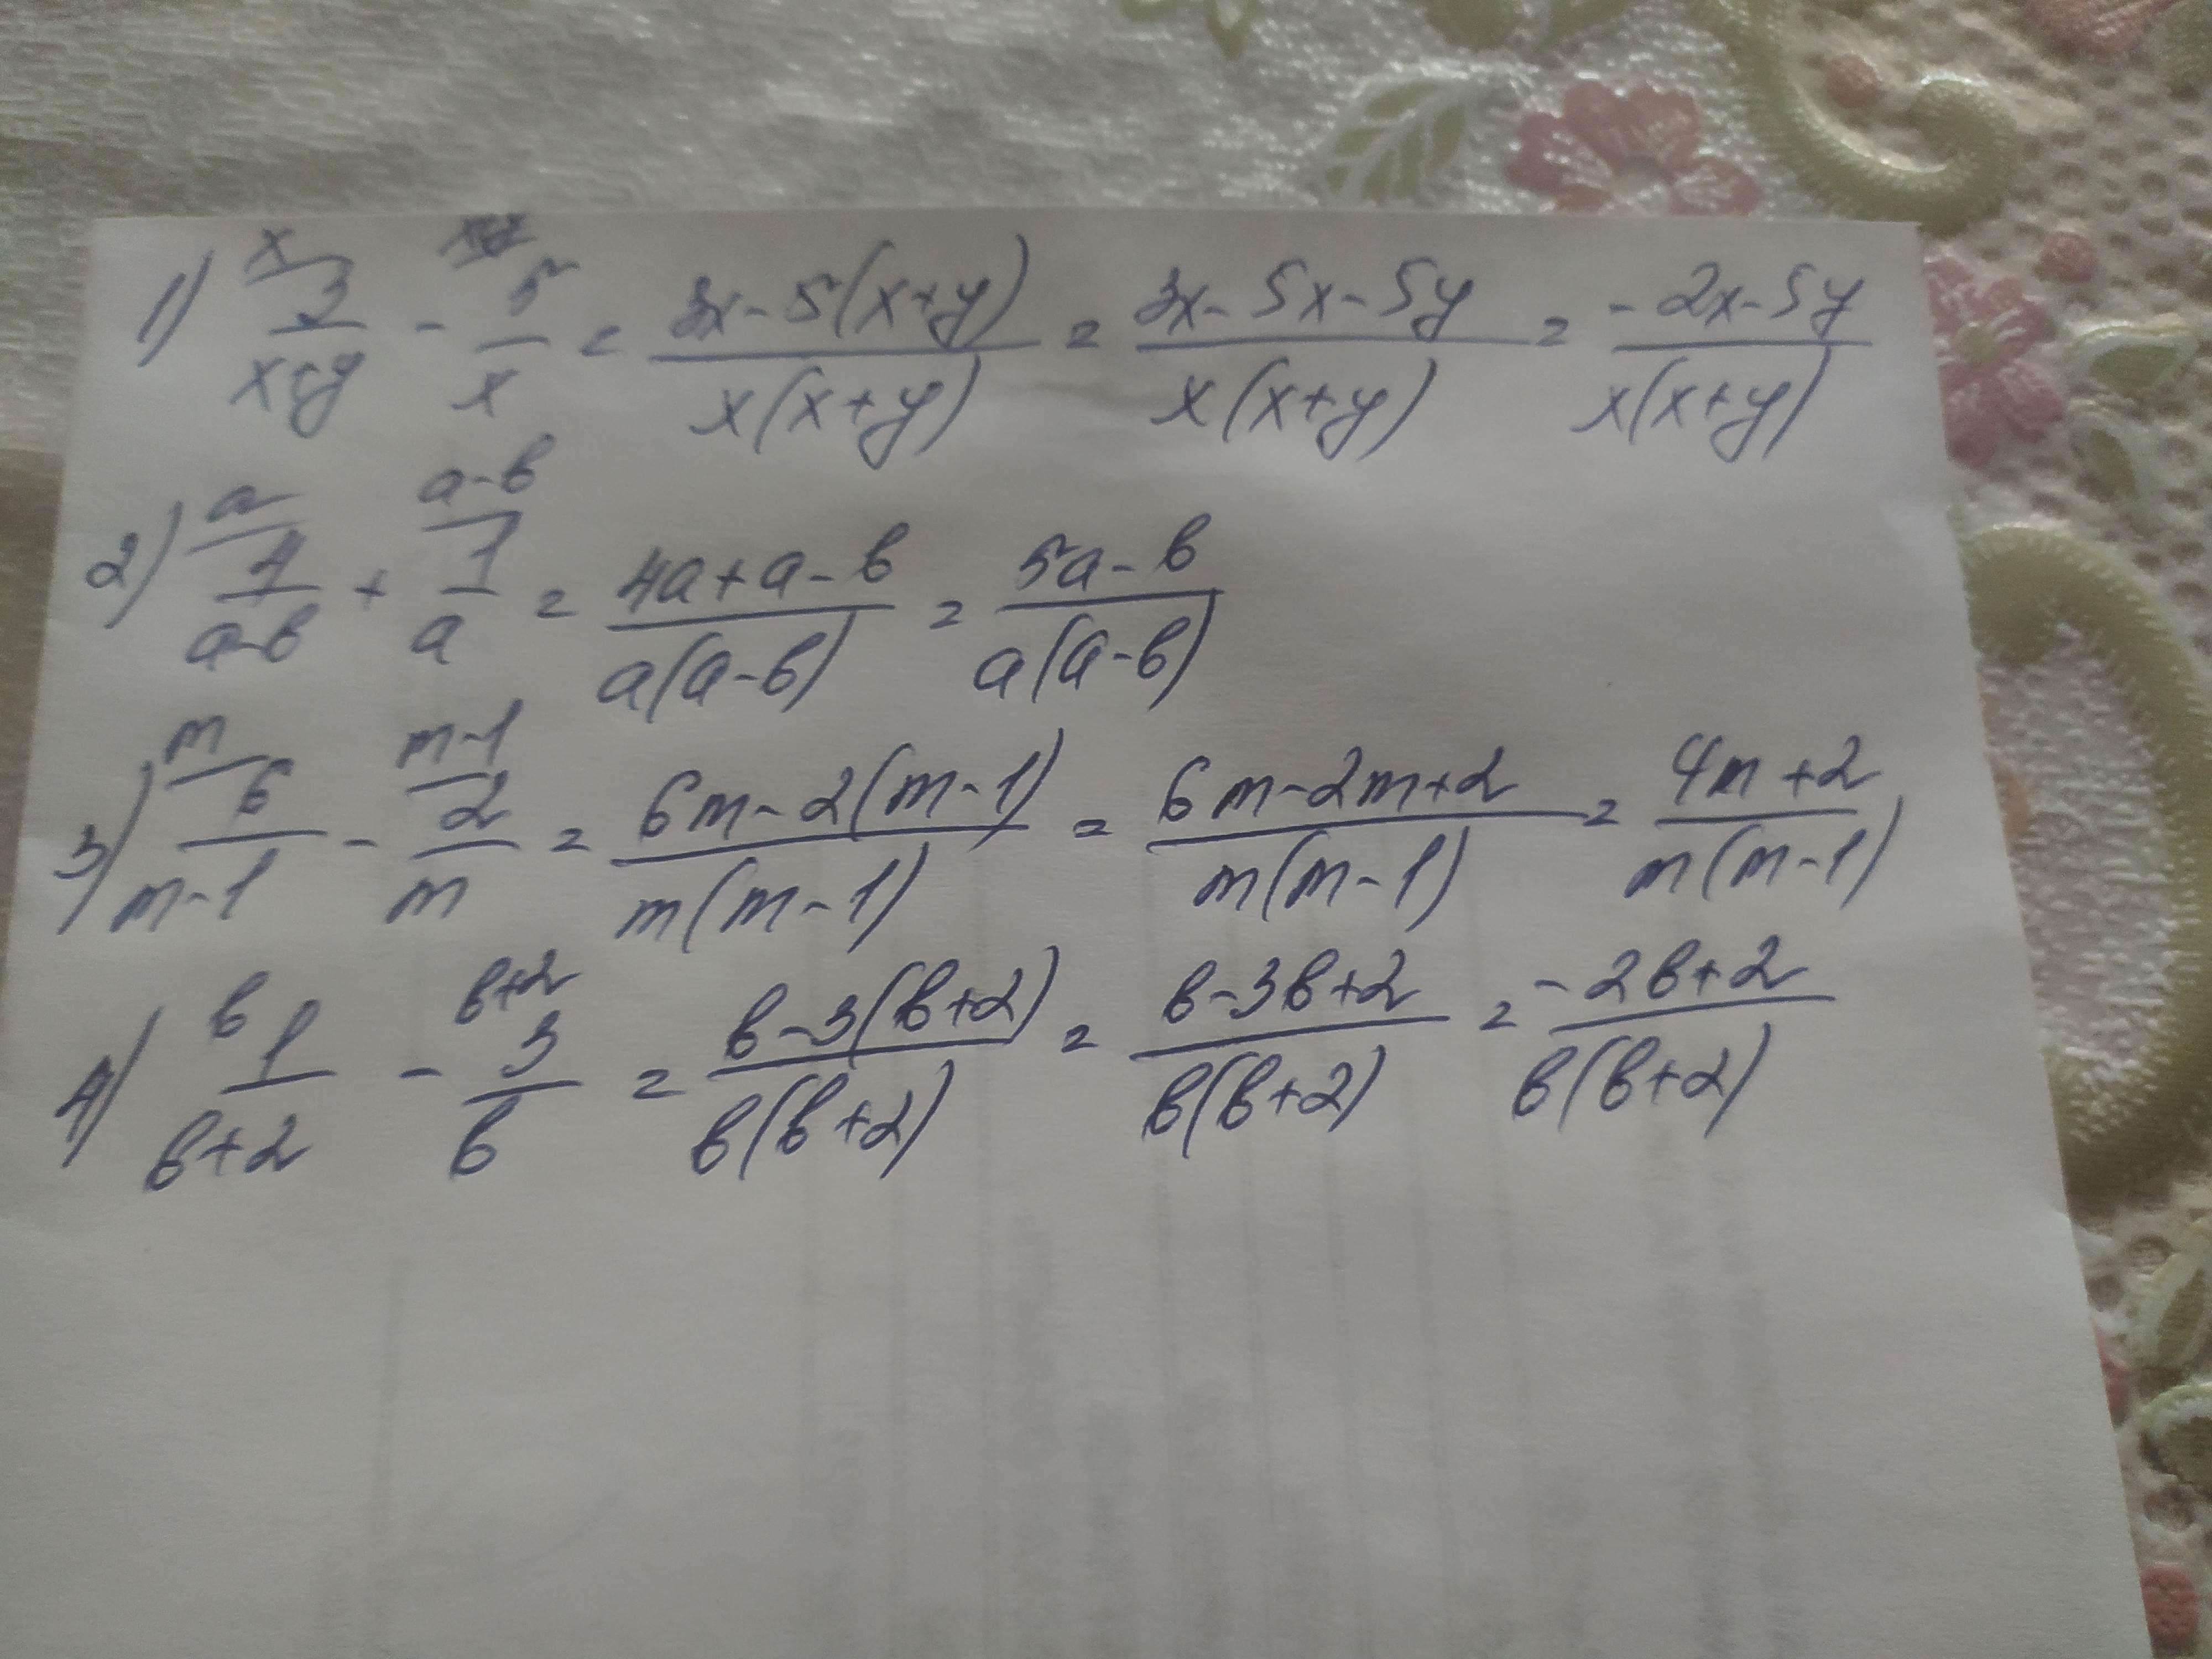 1) x 3/(x+y) - 5/x = (3x-5(x+y))/(x(x+y)) = (3x-5x-5y)/(x(x+y)) = (-2x-5y)/(x(x+y))
2) a 4/(a-b) + a-b 1/a = (4a+a-b)/(a(a-b)) = (5a-b)/(a(a-b))
3) m 6/(m-1) - m-1 2/m = (6m-2(m-1))/(m(m-1)) = (6m-2m+2)/(m(m-1)) = (4m+2)/(m(m-1))
4) b 1/(b+2) - b+2 3/b = (b-3(b+2))/(b(b+2)) = (b-3b+2)/(b(b+2)) = (-2b+2)/(b(b+2))